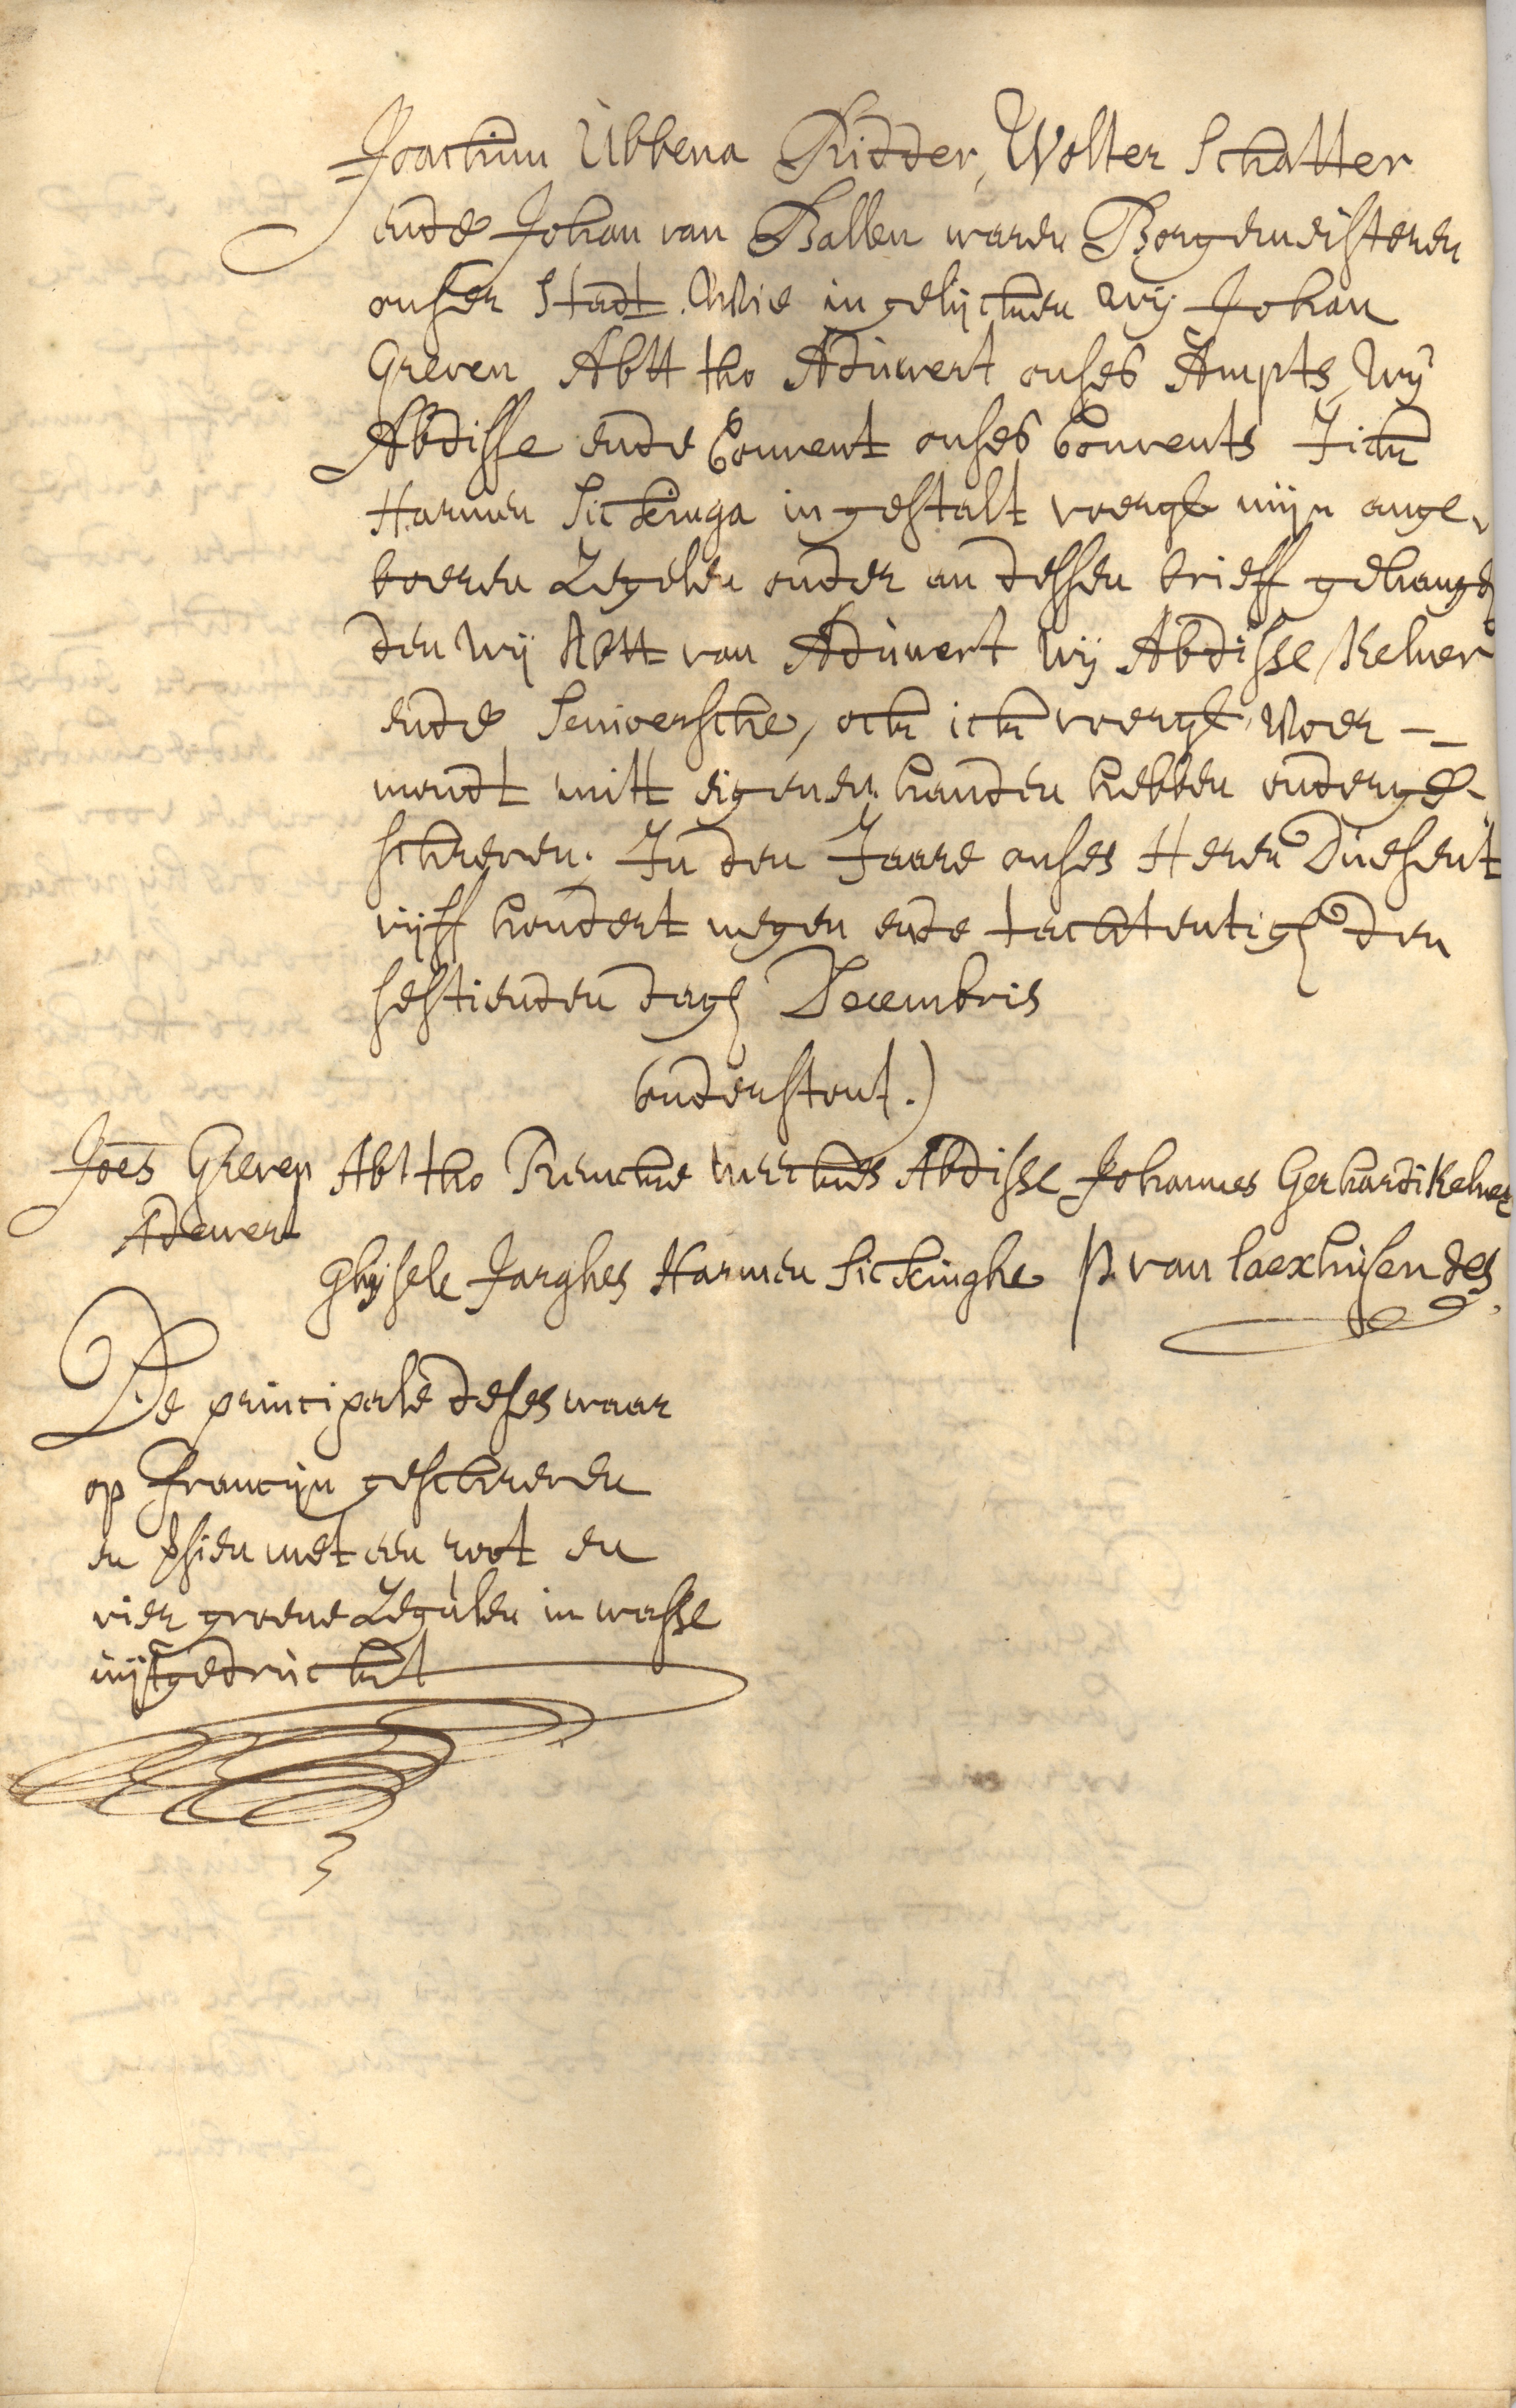 Joachim Ubbena Ridder, Wolter Schatter
ende Johan van Ballen waren Borgemeisteren
onser Stadt. Wie in gelijcken wij Johan
Greven Abtt tho Aduwert onses Ampts, wij
Abdisse ende Convent onses Convents Jick
Harmen Sickinga in gestalt voergt mijn ange-
boeren Zegelen onder an dessen brieff gehangen
den wij Abtt van Aduwert wij Abdisse, Kelner
ende Senioersche, ock ick voergt, Voer-
mondt mitt eigenen handen hebben onderge-
schreven. In den Jaare onses Heren Duesent
vijff hondert negen ende tachtentigh den
sestienden dagh Decembris
onderstont.)
Joes Greven Abt tho Abdisse Johannes Gerhardi Kelner
Adewert
Ghysele Jarghes Harmen Sickinghe P. van Laexhusen des.
De principale deses waar
op Francijn geschreven
en met een root en
vier groene Zegulen in wasse
uijtgedruckt